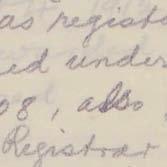 as regist
ed under
08, also
Registrar